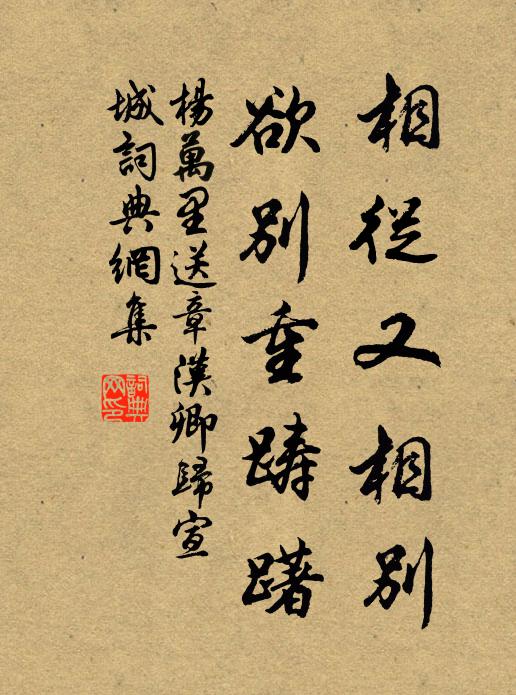 相從又相別
欲別重踌躇
楊萬里送章漢卿歸宣
城詞典網集
詞典
网印